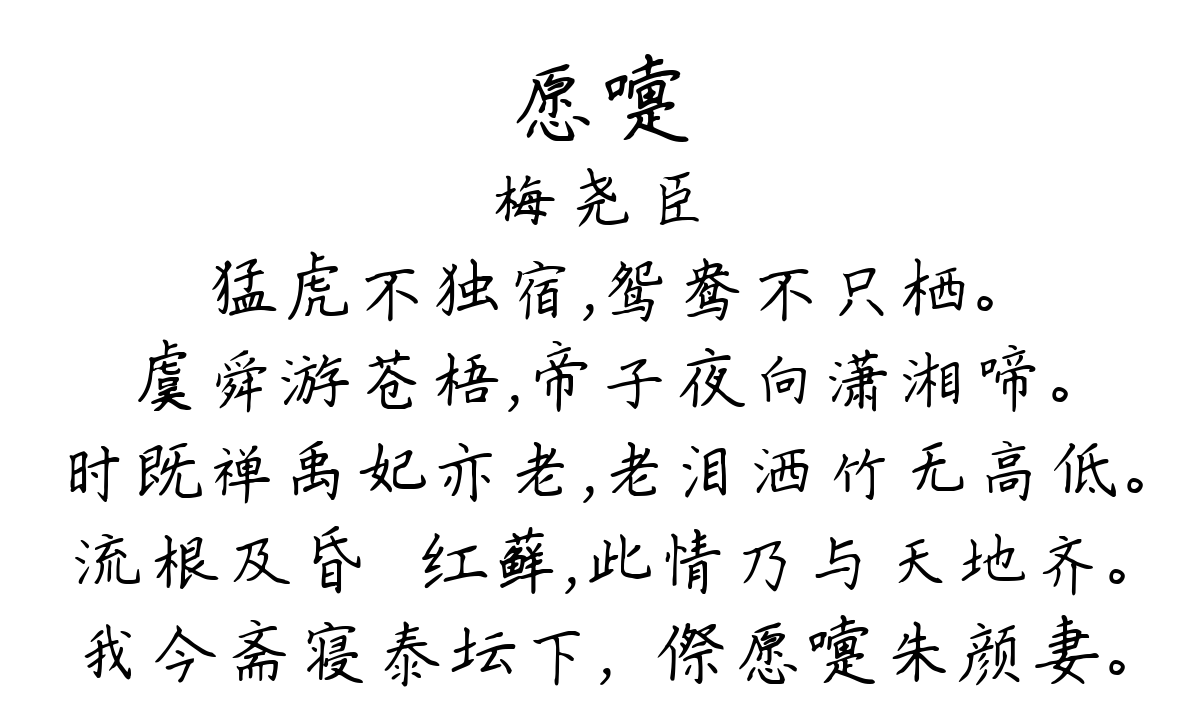 愿嚏
梅尧臣
猛虎不独宿,鸳鸯不只栖。
虞舜游苍梧,帝子夜向潇湘啼。
时既禅禹妃亦老,老泪洒竹无高低。
流根及昏 红藓,此情乃与天地齐。
我今斋寝泰坛下，傺愿嚏朱颜妻。